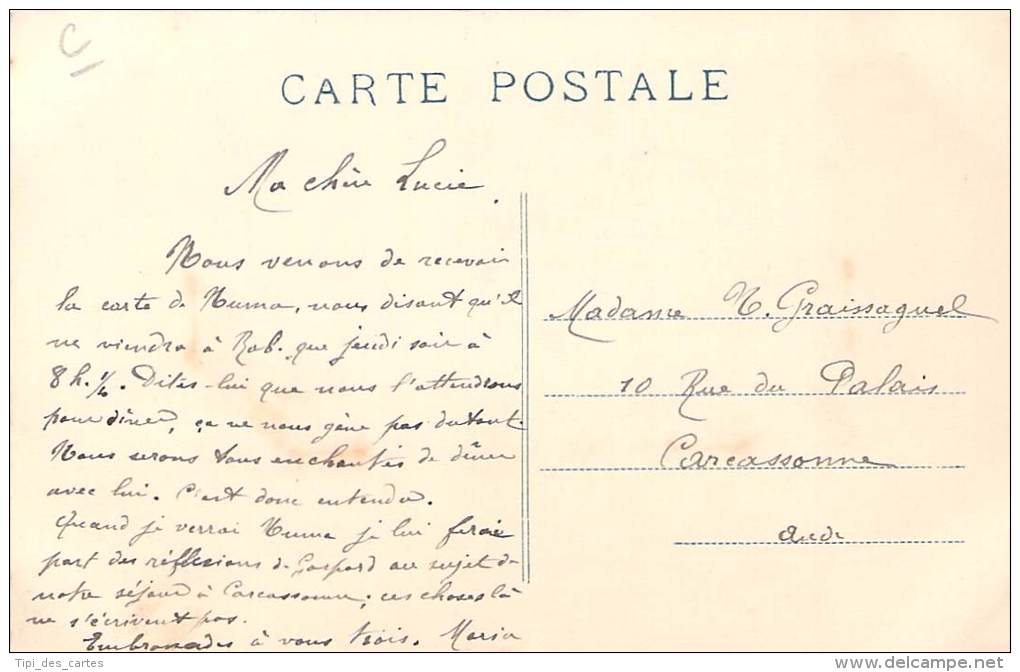 C
CARTE POSTALE
Ma chère Lucie.
Nous venons de recevoir
la carte de Numa, nous disant qu'il
ne viendra à Rab. que jeudi soir à
8h. ½. Dites-lui que nous l'attendrons
pour dîner, ça ne nous gêne pas du tout.
Nous serons tous enchantés de dîner
avec lui. C'est donc entendu.
Quand je verrai Numa je lui ferai
part des réflexions de Gaspard au sujet de
notre séjour à Carcassonne ; ces choses là
ne s'écrivent pas.
Embrassades à vous trois. Maria
Madame N. Graissaguel
10 Rue du Palais
Carcassonne
Aude
Tipi_des_cartes
http://www.delcampe.net